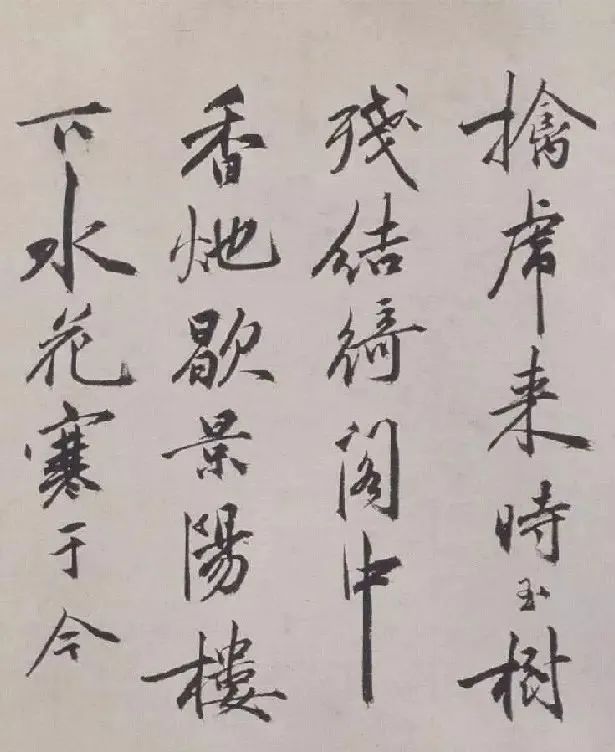 擒虎来時玉樹
殘結綺閣中
香灺歇景陽樓
下水花寒于今